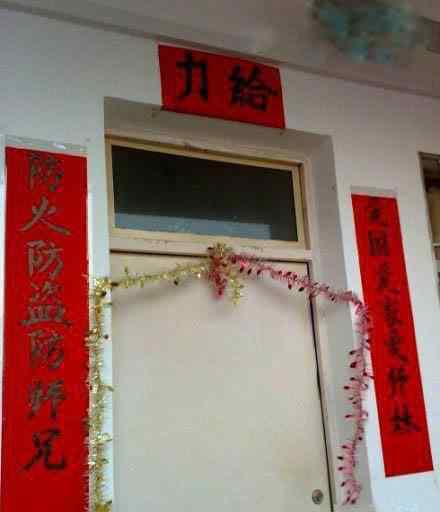 给力
爱國爱家爱师妹
防火防盗防师兄